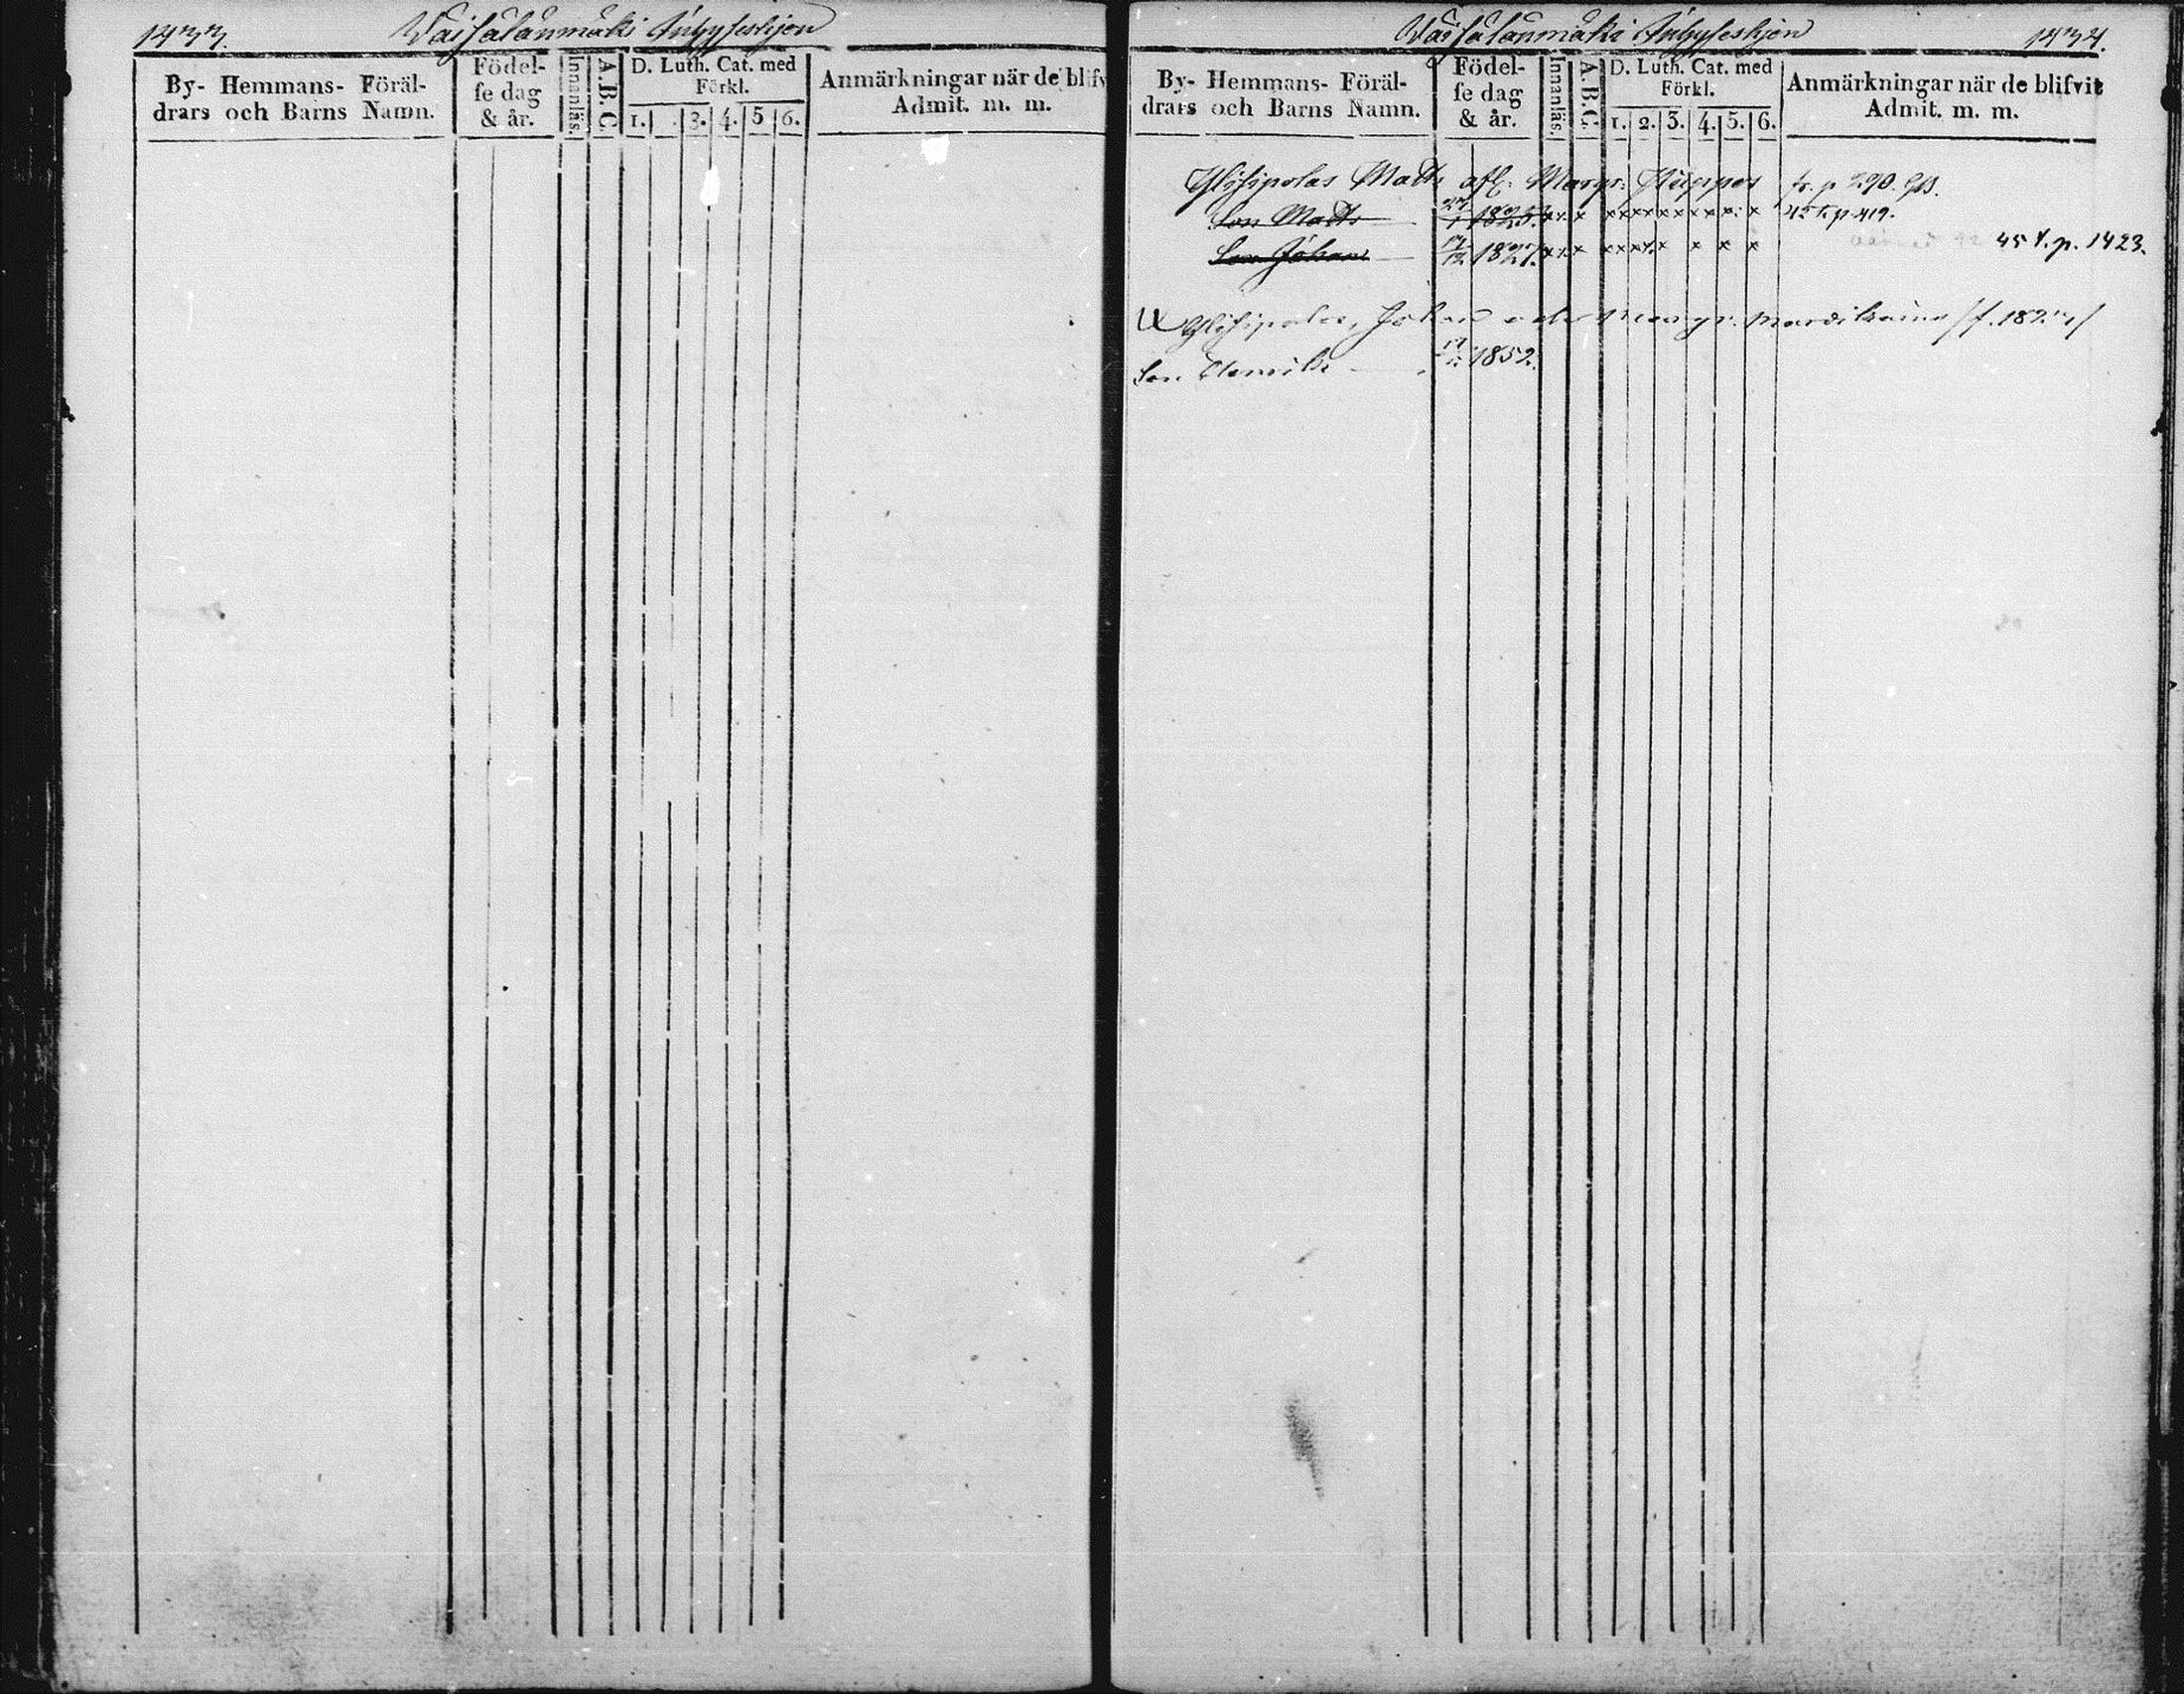 1433. Väisälänmäki
By- Hemmans- Föräl-
drars och Barns Namn.
Födel-
se dag
& år.
Innanläs.
A.B.C.
D. Luth. Cat. med
Förkl.
1. 3. 4. 5 6.
Anmärkningar när de blifv
Admit. m. m.
Väisälänmäki 1434.
By- Hemmans- Föräl-
drars och Barns Namn.
Födel-
se dag
& år.
Innanläs.
A.B.C.
D. Luth. Cat. med
Förkl.
1. 2. 3. 4. 5. 6.
Anmärkningar när de blifvit
Admit. m. m.
Matts afl. Margr: fr. p 290.
Son Matts 1825. x x x x x x x x x x x x p 419.
Son Johan 1827. x x x x x x x x x x 45 f. p. 1423.
Johan Margr.
Son Henrik 1852.